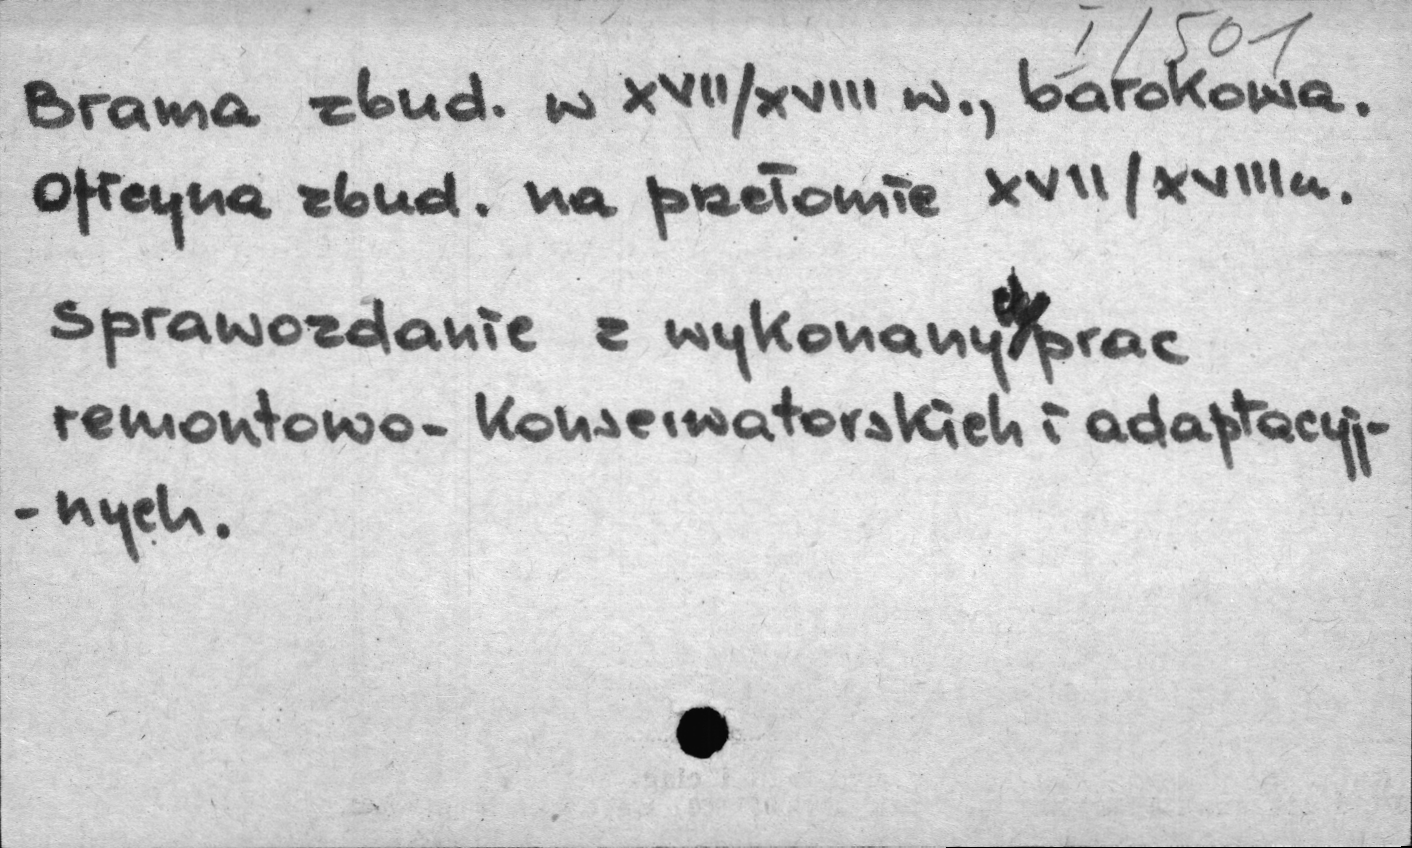 I/501
Brama zbud. w XVII/XVIII w., barokowa.
Oficyna zbud. na przełomie XVII/XVIII w.
Sprawozdanie z wykonanych prac
remontowo-konserwatorskich i adaptacyj-
-nych.